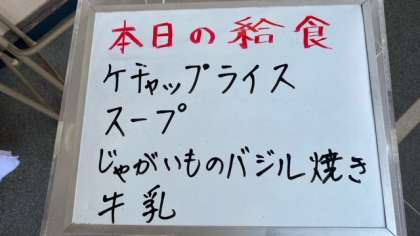 本日の給食
ケチャップライス
スープ
じゃがいものバジル焼き
牛乳